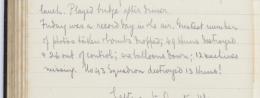 lunch. Played bridge after dinner.
Friday was a record day in the air. Greatest number
of photos taken & bombs dropped; 49 Huns destroyed
& 26 out of control; balloons down; 12 machines
missing. No 43 Squadron destroyed 13 Huns!